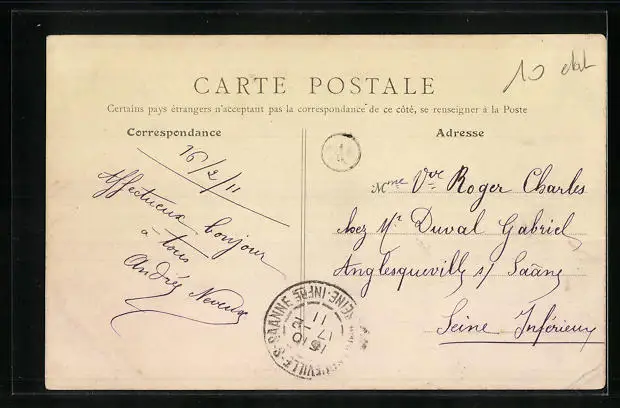 10 etat
CARTE POSTALE
Certains pays étrangers n'acceptant pas la correspondance de ce côté, se renseigner à la Poste
Correspondance
16/2/11
Affectueux bonjour
à tous
André Neveux
Adresse
Mme Vve Roger Charles
chez Mr Duval Gabriel
Anglesqueville s/ Saâne
Seine Inférieure
SAANNE SEINE-INFRE
15 10
17 - 2
11